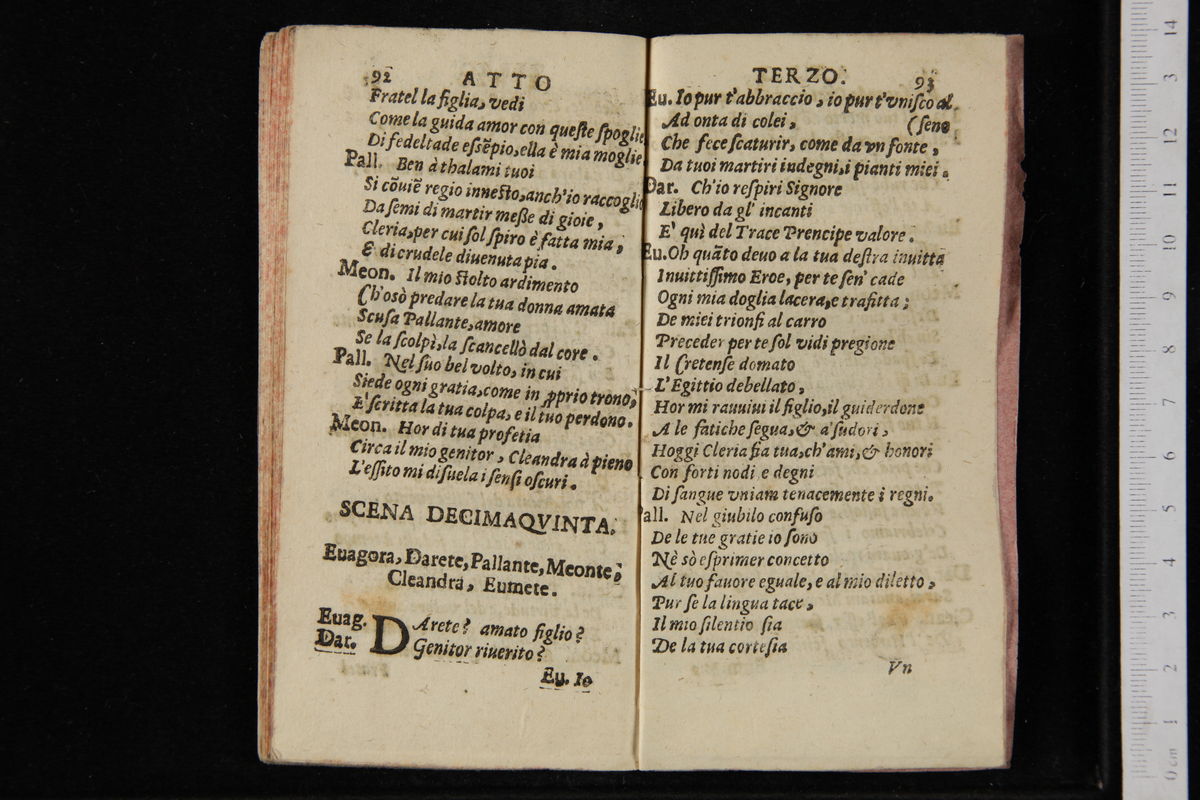 92 ATTO
Fratel la figlia, vedi
Come la guida amor con queſte ſpoglie
Di fedeltade eſsẽpio, ella è mia moglie
Pall. Ben à thalami tuoi
Si cõuiẽ regio inneſto, anch'io raccoglio
Da ſemi di martir meſſe di gioie,
Cleria, per cui ſol ſpiro è fatta mia,
E di crudele diuenuta pia.
Meon. Il mio ſtolto ardimento
Ch'osò predare la tua donna amata
Scuſa Pallante, amore
Se la ſcolpì, la ſcancellò dal core.
Pall. Nel ſuo bel volto, in cui
Siede ogni gratia, come in ꝓprio trono,
E' ſcritta la tua colpa, e il tuo perdono.
Meon. Hor di tua profetia
Circa il mio genitor, Cleandra à pieno
L'eſſito mi diſuela i ſenſi oſcuri.
SCENA DECIMAQVINTA.
Euagora, Darete, Pallante, Meonte,
Cleandra, Eumete.
Euag. DArete? amato figlio?
Dar. Genitor riuerito?
Eu. Io
TERZO. 93
Eu. Io pur t'abbraccio, io pur t'vniſco al
Ad onta di colei, (ſeno
Che fece ſcaturir, come da vn fonte,
Da tuoi martiri indegni, i pianti miei.
Dar. Ch'io reſpiri Signore
Libero da gl' incanti
E' quì del Trace Prencipe valore.
Eu. Oh quãto deuo a la tua deſtra inuitta
Inuittiſſimo Eroe, per te ſen' cade
Ogni mia doglia lacera, e trafitta;
De miei trionfi al carro
Preceder per te ſol vidi pregione
Il Cretenſe domato
L'Egittio debellato,
Hor mi rauuiui il figlio, il guiderdone
A le fatiche ſegua, & a' ſudori,
Hoggi Cleria ſia tua, ch'ami, & honori
Con forti nodi e degni
Di ſangue vniam tenacemente i regni.
Pall. Nel giubilo confuſo
De le tue gratie io ſono
Nè sò eſprimer concetto
Al tuo fauore eguale, e al mio diletto,
Pur ſe la lingua tace,
Il mio ſilentio ſia
De la tua corteſia
Vn